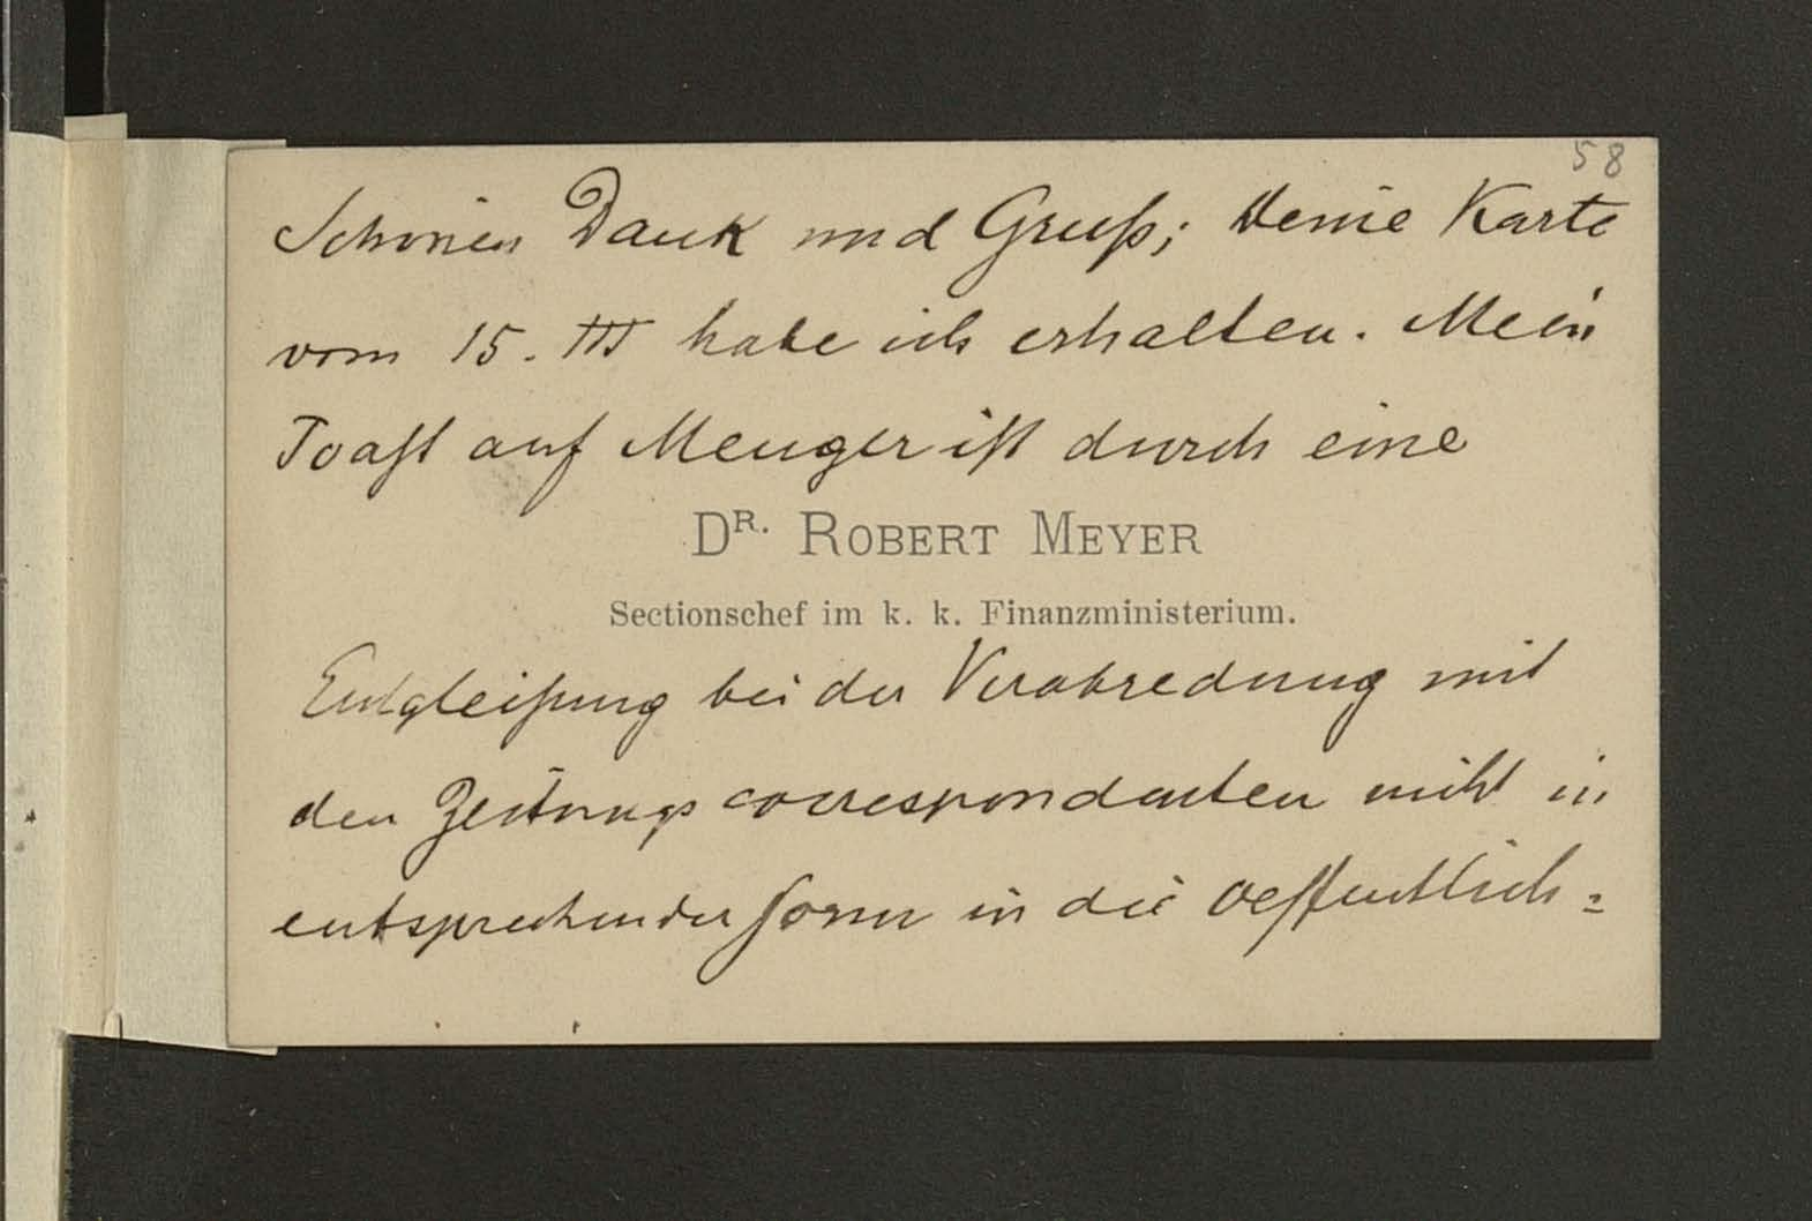 58
Schönen Dank und Gruß; Deine Karte
vom 15. III habe ich erhalten. Mein
Toast auf Menger ist durch eine
DR. ROBERT MEYER
Sectionschef im k. k. Finanzministerium.
Entgleisung bei der Verabredung mit
den Zeitungscorrespondenten nicht in
entsprechender Form in die Oeffentlich=